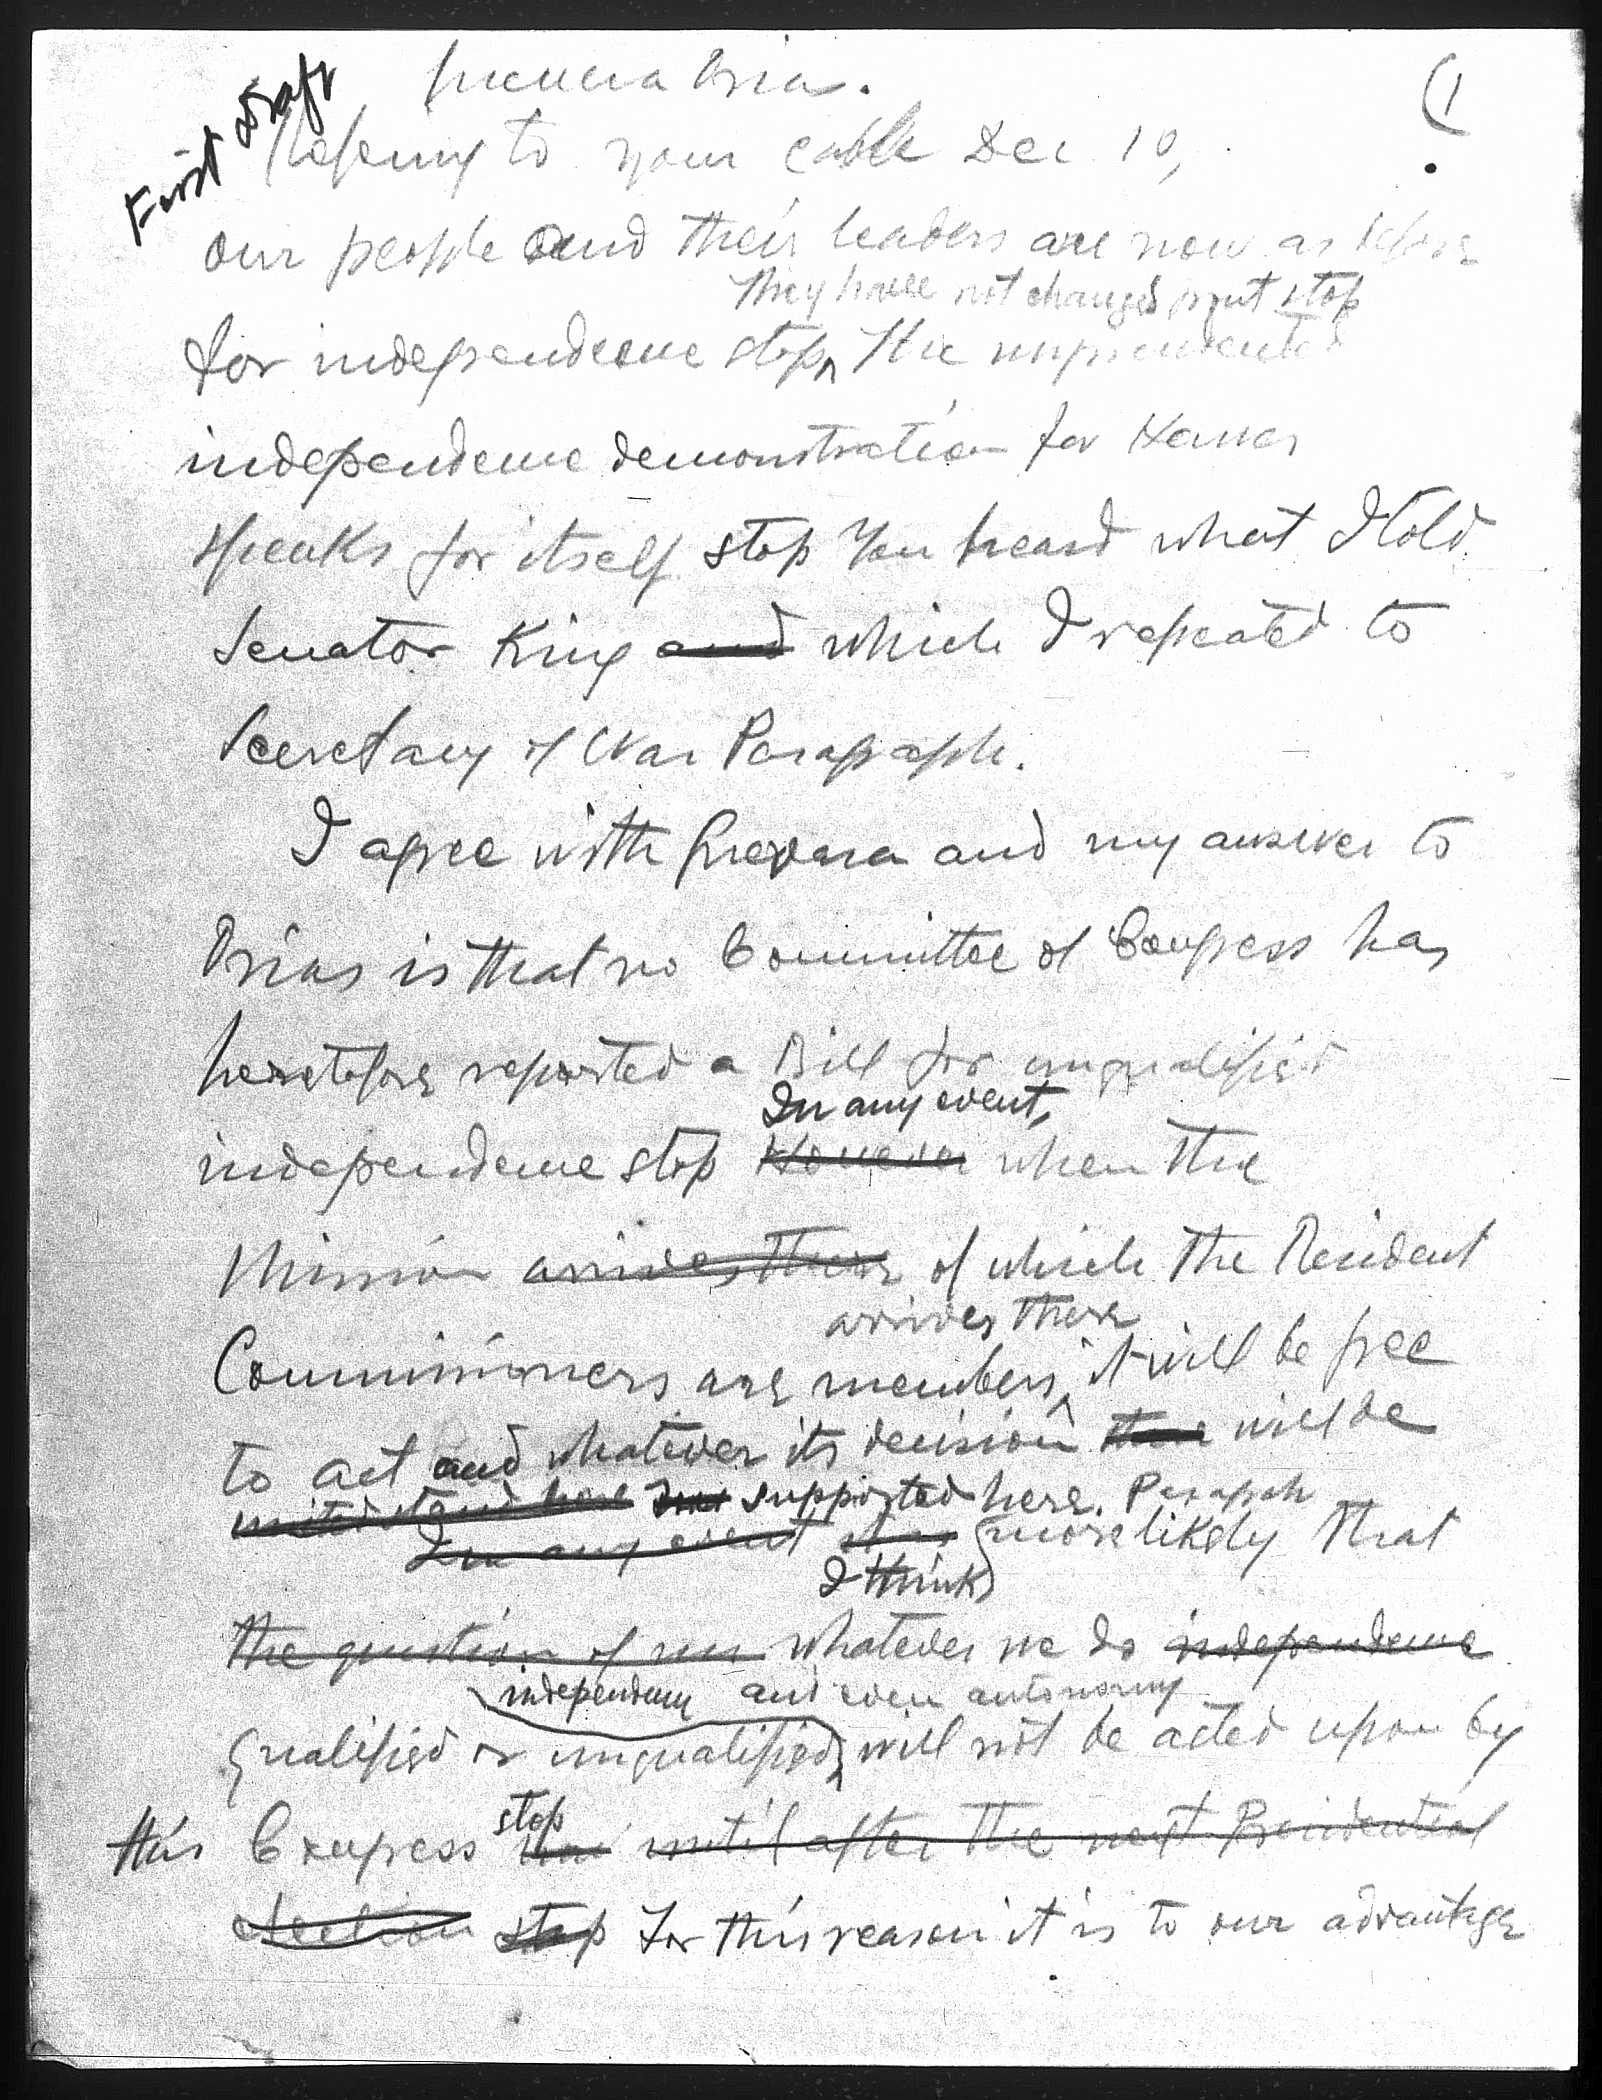 First draft
Guevara Osias.
(1
Refering to your cable Dec 10,
our people and their leaders are now as before
They have not changed front stop
for independence stop The unprecedented
independence demonstration for Hawes
speaks for itself stop You heard what I told
Senator King and which I repeated to
Secretary of War Paragraph.
I agree with Guevara and my answer to
Osias is that no Committee of Congress has
heretofore reported a Bill for unqualified
In any event,
independence stop However when the
Mission arrives there of which the Resident
arrives there
Commissioners are members, it will be free
to act and whatever its decision will be
united stand here supported here. Paragraph
In any event it is more likely that
I think
the question of our whatever we do independence
independence and even autonomy
qualified or unqualified will not be acted upon by
stop
this Congress until after the next Presidential
election stop For this reason it is to our advantage